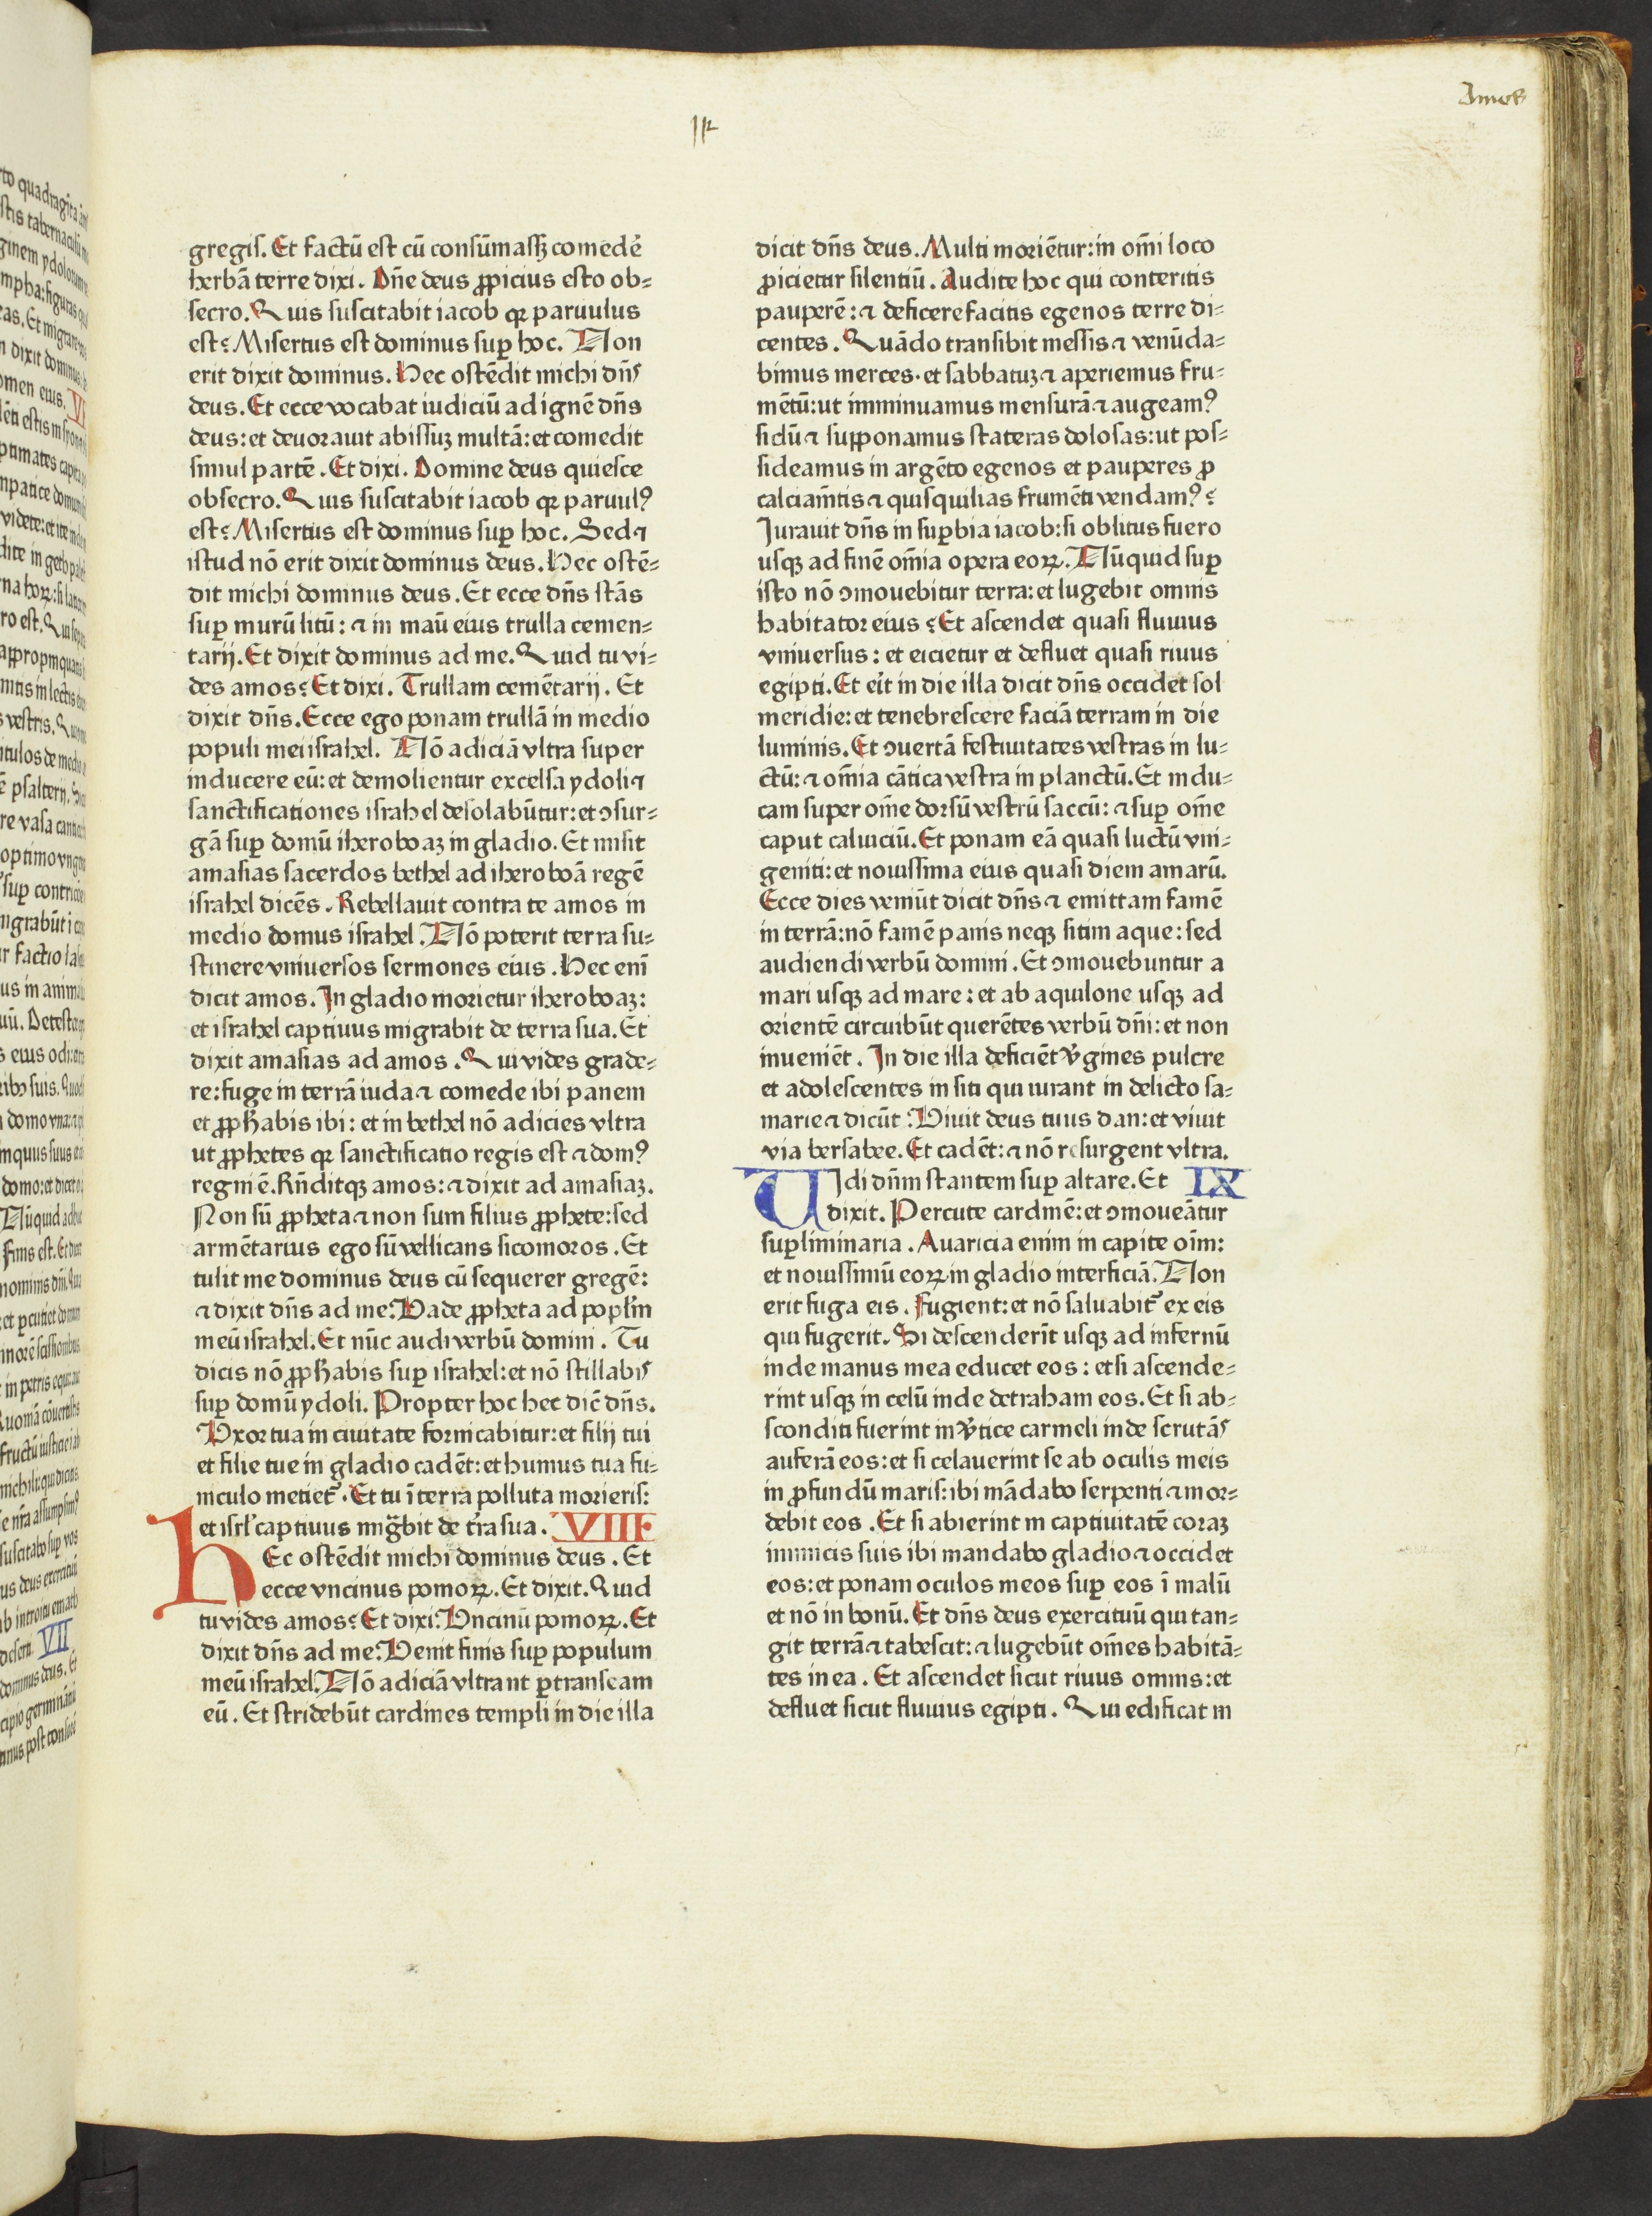 Amos
gregis. Et factū est cū consūmassꝫ comedē
herbā terre dixi. Dn̄e deus ꝓpicius esto ob⸗
secro. Quis suscitabit iacob qꝛ paruulus
est? Misertus est dominus suꝑ hoc. Non
erit dixit dominus. Hec ostēdit michi dn̄s
deus. Et ecce vocabat iudiciū ad ignē dn̄s
deus: et deuorauit abissuꝫ multā: et comedit
simul partē. Et dixi. Domine deus quiesce
obsecro. Quis suscitabit iacob qꝛ paruulꝰ
est? Misertus est dominus suꝑ hoc. Sed ⁊
istud nō erit dixit dominus deus. Hec ostē⸗
dit michi dominus deus. Et ecce dn̄s stās
suꝑ murū litū: ⁊ in manū eius trulla cemen⸗
tarij. Et dixit dominus ad me. Quid tu vi⸗
des amos? Et dixi. Trullam cemētarij. Et
dixit dn̄s. Ecce ego ponam trullā in medio
populi mei israhel. Nō adiciā vltra super
inducere eū: et demolientur excelsa ydoli ⁊
sanctificationes israhel desolabūtur: et ↄsur⸗
gā suꝑ domū iheroboaꝫ in gladio. Et misit
amasias sacerdos bethel ad iheroboā regē
israhel dicēs. Rebellauit contra te amos in
medio domus israhel. Nō poterit terra su⸗
stinere vniuersos sermones eius. Hec enī
dicit amos. In gladio morietur iheroboaꝫ:
et israhel captiuus migrabit de terra sua. Et
dixit amasias ad amos. Qui vides grade⸗
re: fuge in terrā iuda ⁊ comede ibi panem
et ꝓpħabis ibi: et in bethel nō adicies vltra
ut ꝓphetes qꝛ sanctificatio regis est ⁊ domꝰ
regni ē. Rn̄ditqꝫ amos: ⁊ dixit ad amasiaꝫ.
Non sū ꝓpheta ⁊ non sum filius ꝓphete: sed
armētarius ego sū vellicans sicomoros. Et
tulit me dominus deus cū sequerer gregē:
⁊ dixit dn̄s ad me. Vade ꝓpheta ad popl̄m
meū israhel. Et nūc audi verbū domini. Tu
dicis nō ꝓpħabis suꝑ israhel: et nō stillabis
suꝑ domū ydoli. Propter hoc hec dic̄ dn̄s.
Vxor tua in ciuitate fornicabitur: et filij tui
et filie tue in gladio cadēt: et humus tua fu⸗
niculo metietᷣ. Et tu ī terra polluta morieris:
et isrl̄ captiuus mig̈bit de t̄ra sua. VIII
Hec ostēdit michi dominus deus. Et
ecce vncinus pomoꝝ. Et dixit. Quid
tu vides amos? Et dixi. Vncinū pomoꝝ. Et
dixit dn̄s ad me. Venit finis suꝑ populum
meū israhel. Nō adiciā vltra nt ꝑtranseam
eū. Et stridebūt cardines templi in die illa
dicit dn̄s deus. Multi moriētur: in om̄i loco
ꝓicietur silentiū. Audite hoc qui conteritis
pauperē: ⁊ deficere facitis egenos terre di⸗
centes. Quādo transibit messis ⁊ venūda⸗
bimus merces. et sabbatuꝫ ⁊ aperiemus fru⸗
mētū: ut imminuamus mensurā ⁊ augeamꝰ
siclū ⁊ supponamus stateras dolosas: ut pos⸗
sideamus in argēto egenos et pauperes ꝓ
calciam̄tis ⁊ quisquilias frumēti vendamꝰ?
Iurauit dn̄s in suꝑbia iacob: si oblitus fuero
usqꝫ ad finē om̄ia opera eoꝝ. Nūquid suꝑ
isto nō ↄmouebitur terra: et lugebit omnis
habitator eius? Et ascendet quasi fluuius
vniuersus: et eicietur et defluet quasi riuus
egipti. Et eīt in die illa dicit dn̄s occidet sol
meridie: et tenebrescere faciā terram in die
luminis. Et ↄuertā festiuitates vestras in lu⸗
ctū: ⁊ om̄ia cātica vestra in planctū. Et indu⸗
cam super om̄e dorsū vestrū saccū: ⁊ suꝑ om̄e
caput caluiciū. Et ponam eā quasi luctū vni⸗
geniti: et nouissima eius quasi diem amarū.
Ecce dies veniūt dicit dn̄s ⁊ emittam famē
in terrā: nō famē panis neqꝫ sitim aque: sed
audiendi verbū domini. Et ↄmouebuntur a
mari usqꝫ ad mare: et ab aquilone usqꝫ ad
orientē circuibūt querētes verbū dn̄i: et non
inueniēt. In die illa deficiēt v̾gines pulcre
et adolescentes in siti qui iurant in delicto sa⸗
marie ⁊ dicūt. Viuit deus tuus dan: et viuit
via bersabee. Et cadēt: ⁊ nō resurgent vltra.
Vidi dn̄m stantem suꝑ altare. Et IX
dixit. Percute cardinē: et ↄmoueātur
suꝑliminaria. Auaricia enim in capite oīm:
et nouissimū eoꝝ in gladio interficiā. Non
erit fuga eis. Fugient: et nō saluabitᷣ ex eis
qui fugerit. Si descenderīt usqꝫ ad infernū
inde manus mea educet eos: et si ascende⸗
rint usqꝫ in celū inde detraham eos. Et si ab⸗
sconditi fuerint in v̾tice carmeli inde scrutās
auferā eos: et si celauerint se ab oculis meis
in ꝓfundū maris: ibi mādabo serpenti ⁊ mor⸗
debit eos. Et si abierint in captiuitatē coraꝫ
inimicis suis ibi mandabo gladio ⁊ occidet
eos: et ponam oculos meos suꝑ eos ī malū
et nō in bonū. Et dn̄s deus exercituū qui tan⸗
git terrā ⁊ tabescit: ⁊ lugebūt om̄es habitā⸗
tes in ea. Et ascendet sicut riuus omnis: et
defluet sicut fluuius egipti. Qui edificat in